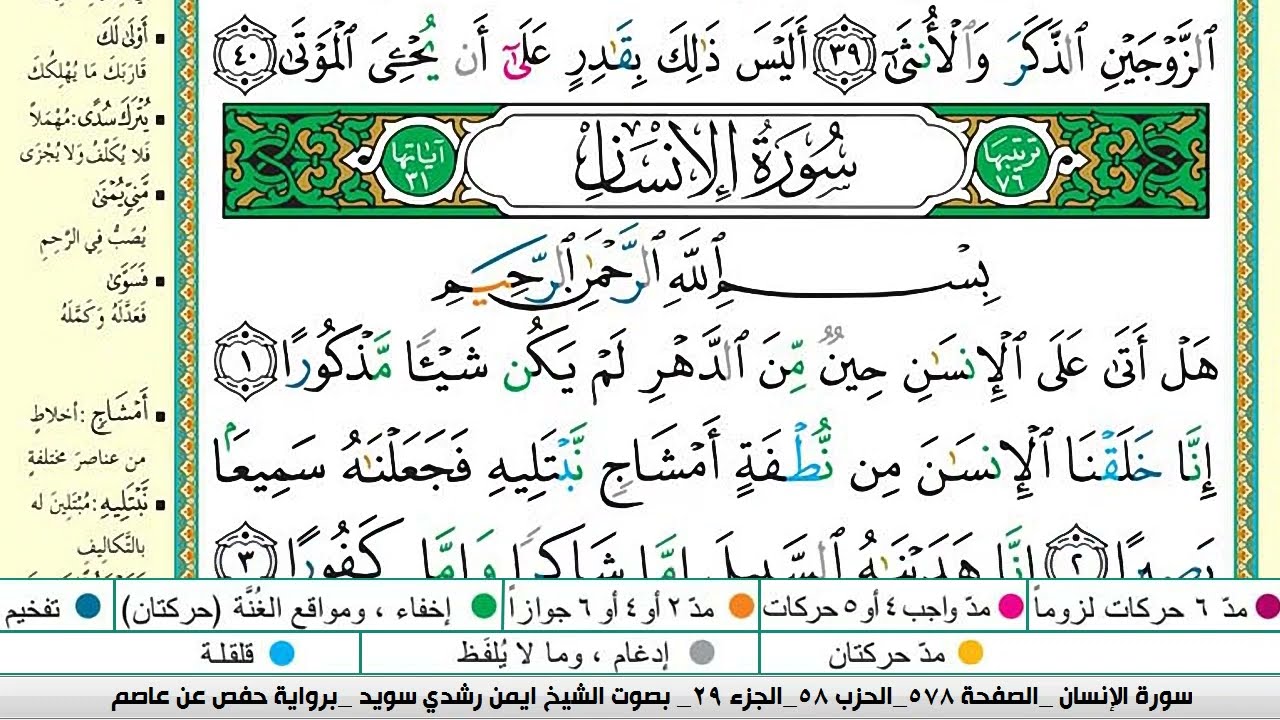 ٱلزَّوۡجَيۡنِ ٱلذَّكَرَ وَٱلۡأُنثَىٰٓ ٣٩ أَلَيۡسَ ذَٰلِكَ بِقَٰدِرٍ عَلَىٰٓ أَن يُحۡـِۧيَ ٱلۡمَوۡتَىٰ ٤٠
ترتيبها ٧٦ سُورَةُ الإِنسَانِ آياتها ٣١
بِسۡمِ ٱللَّهِ ٱلرَّحۡمَٰنِ ٱلرَّحِيمِ
هَلۡ أَتَىٰ عَلَى ٱلۡإِنسَٰنِ حِينٞ مِّنَ ٱلدَّهۡرِ لَمۡ يَكُن شَيۡـٔٗا مَّذۡكُورًا ١
إِنَّا خَلَقۡنَا ٱلۡإِنسَٰنَ مِن نُّطۡفَةٍ أَمۡشَاجٖ نَّبۡتَلِيهِ فَجَعَلۡنَٰهُ سَمِيعَۢا
بَصِيرًا ٢ إِنَّا هَدَيۡنَٰهُ ٱلسَّبِيلَ إِمَّا شَاكِرٗا وَإِمَّا كَفُورًا ٣
أَوْلَىٰ لَكَ
قَارَبَكَ مَا يُهْلِكُكَ
يُتْرَكَ سُدًى: مُهْمَلاً
فَلا يُكَلَّفُ وَلا يُجْزَى
مَنِيٍّ يُمْنَىٰ
يُصَبُّ فِي الرَّحِمِ
فَسَوَّىٰ
فَعَدَّلَهُ وَكَمَّلَهُ
أَمْشَاجٍ: أخلاطٍ
من عناصرَ مختلفةٍ
نَبْتَلِيهِ: مُبْتَلِينَ له
بالتَّكاليفِ
مدّ ٦ حركات لزوماً مدّ واجب ٤ أو ٥ حركات مدّ ٢ أو ٤ أو ٦ جوازاً إخفاء ، ومواقع الغُنَّة (حركتان) تفخيم
مدّ حركتان إدغام ، وما لا يُلفَظ قلقلة
سورة الإنسان _الصفحة ٥٧٨_الحزب ٥٨_الجزء ٢٩_ بصوت الشيخ ايمن رشدي سويد _برواية حفص عن عاصم